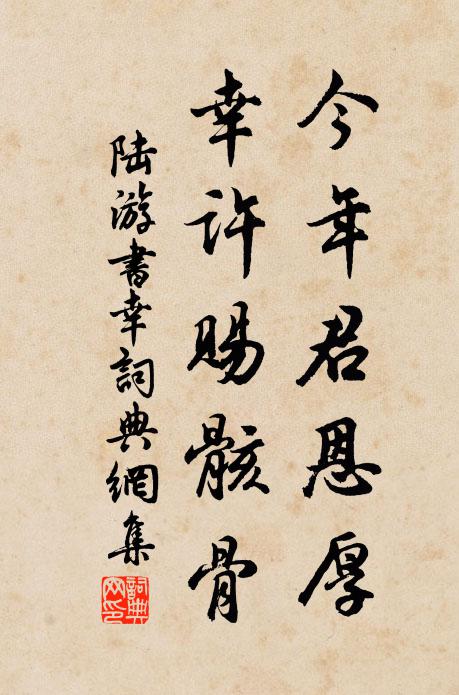 今年君恩厚
幸許賜骸骨
陆游書幸詞典網集
詞典網印